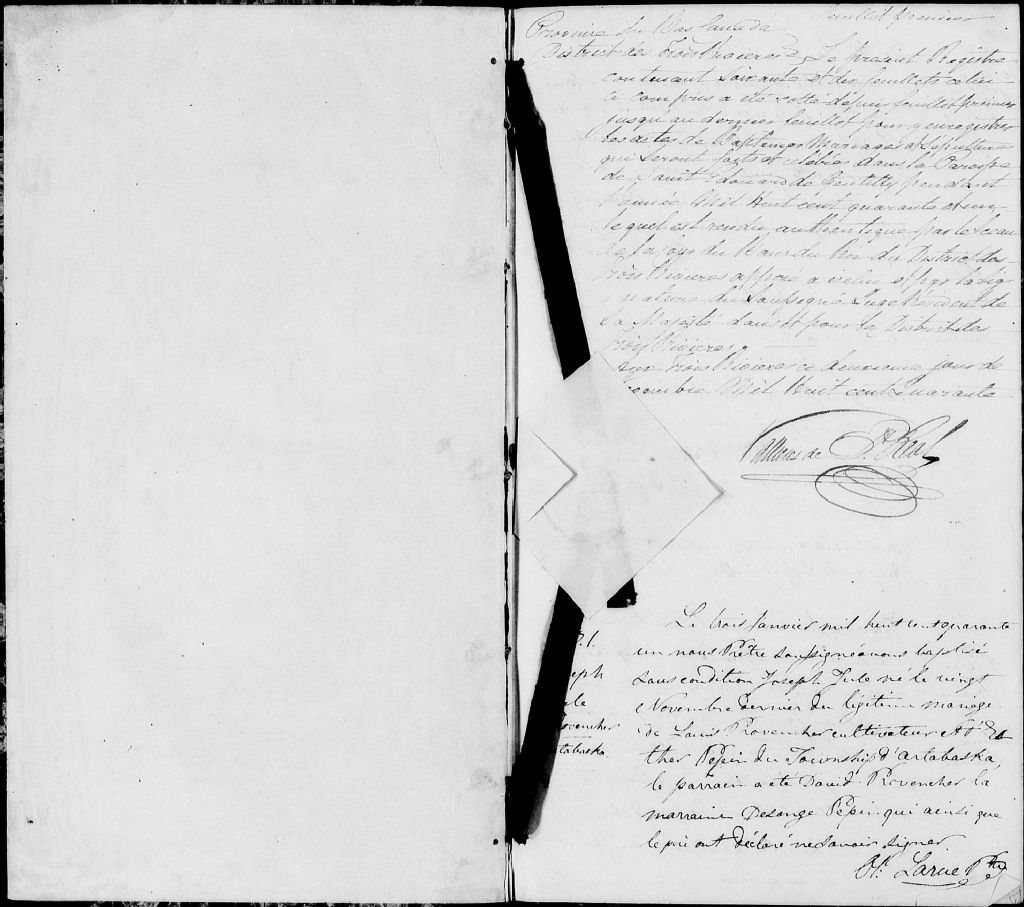 Feuillet premier
Province du Bas Canada
District des Trois Rivieres } Le présent Registre
contenant soixante et dix feuillets celui
ci compris a été cotté dépuis feuillet premier
jusqu'au dernier feuillet pour y enregistrer
les actes de Baptêmes Mariages et Sépultures
qui seront faits et célébrés dans la Paroisse
de Saint Edouard de Gentilly pendant
l'année Mil Huit cent quarante et un
lequel est rendu authentique par le Sceau
de la cour du Banc du Roi du District des
Trois Rivieres apposé a icelui et par la Sig-
nature du Soussigné Juge Résident de
Sa Majesté dans et pour le District des
Trois Rivieres.
Aux Trois Rivieres ce deuxieme jour de
Mil Huit cent Quarante
Vallieres de St Real
Le trois Janvier mil huit cent quarante
un nous Prêtre soussigné avons baptisé
sous condition Joseph Jule né le vingt
Novembre dernier du légitime mariage
de Louis Provencher cultivateur et d'Es
ther Pepin du Township d'artabaska,
le parrain a été David Provencher la
marraine Desange Pepin qui ainsi que
le père ont déclaré ne savoir signer.
Ol. Larue Ptre
B.1.
eph
ule
ovencher
tabaska